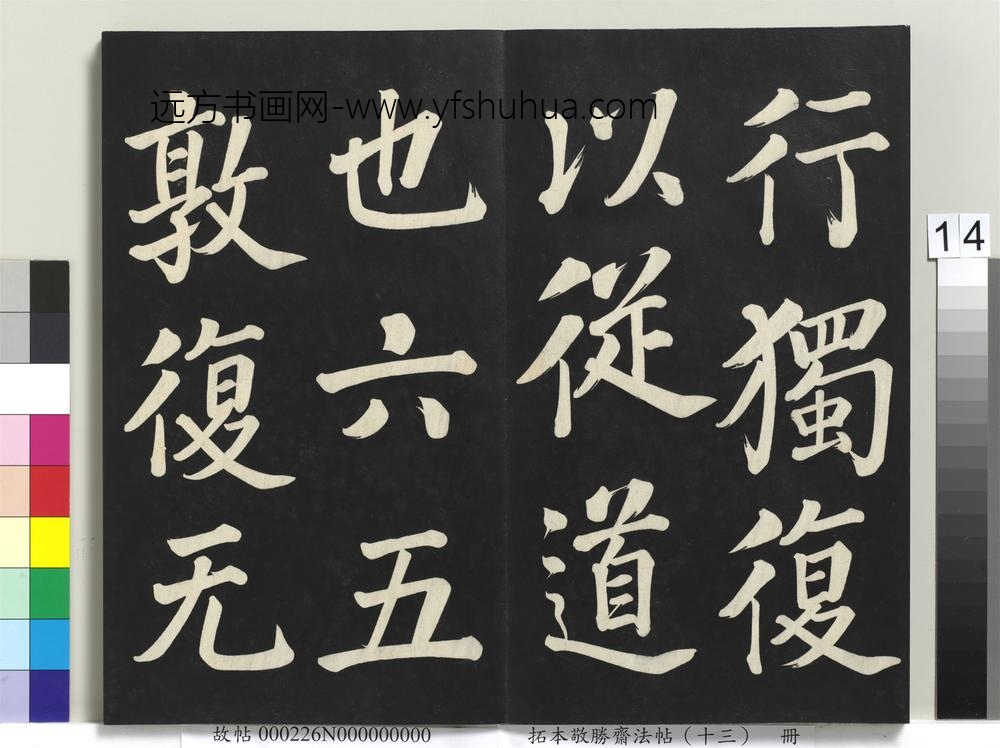 行獨復
以從道
也六五
敦復无
远方书画网-www.yfshuhua.com
14
故帖 000226N000000000
拓本敬勝齋法帖（十三） 冊